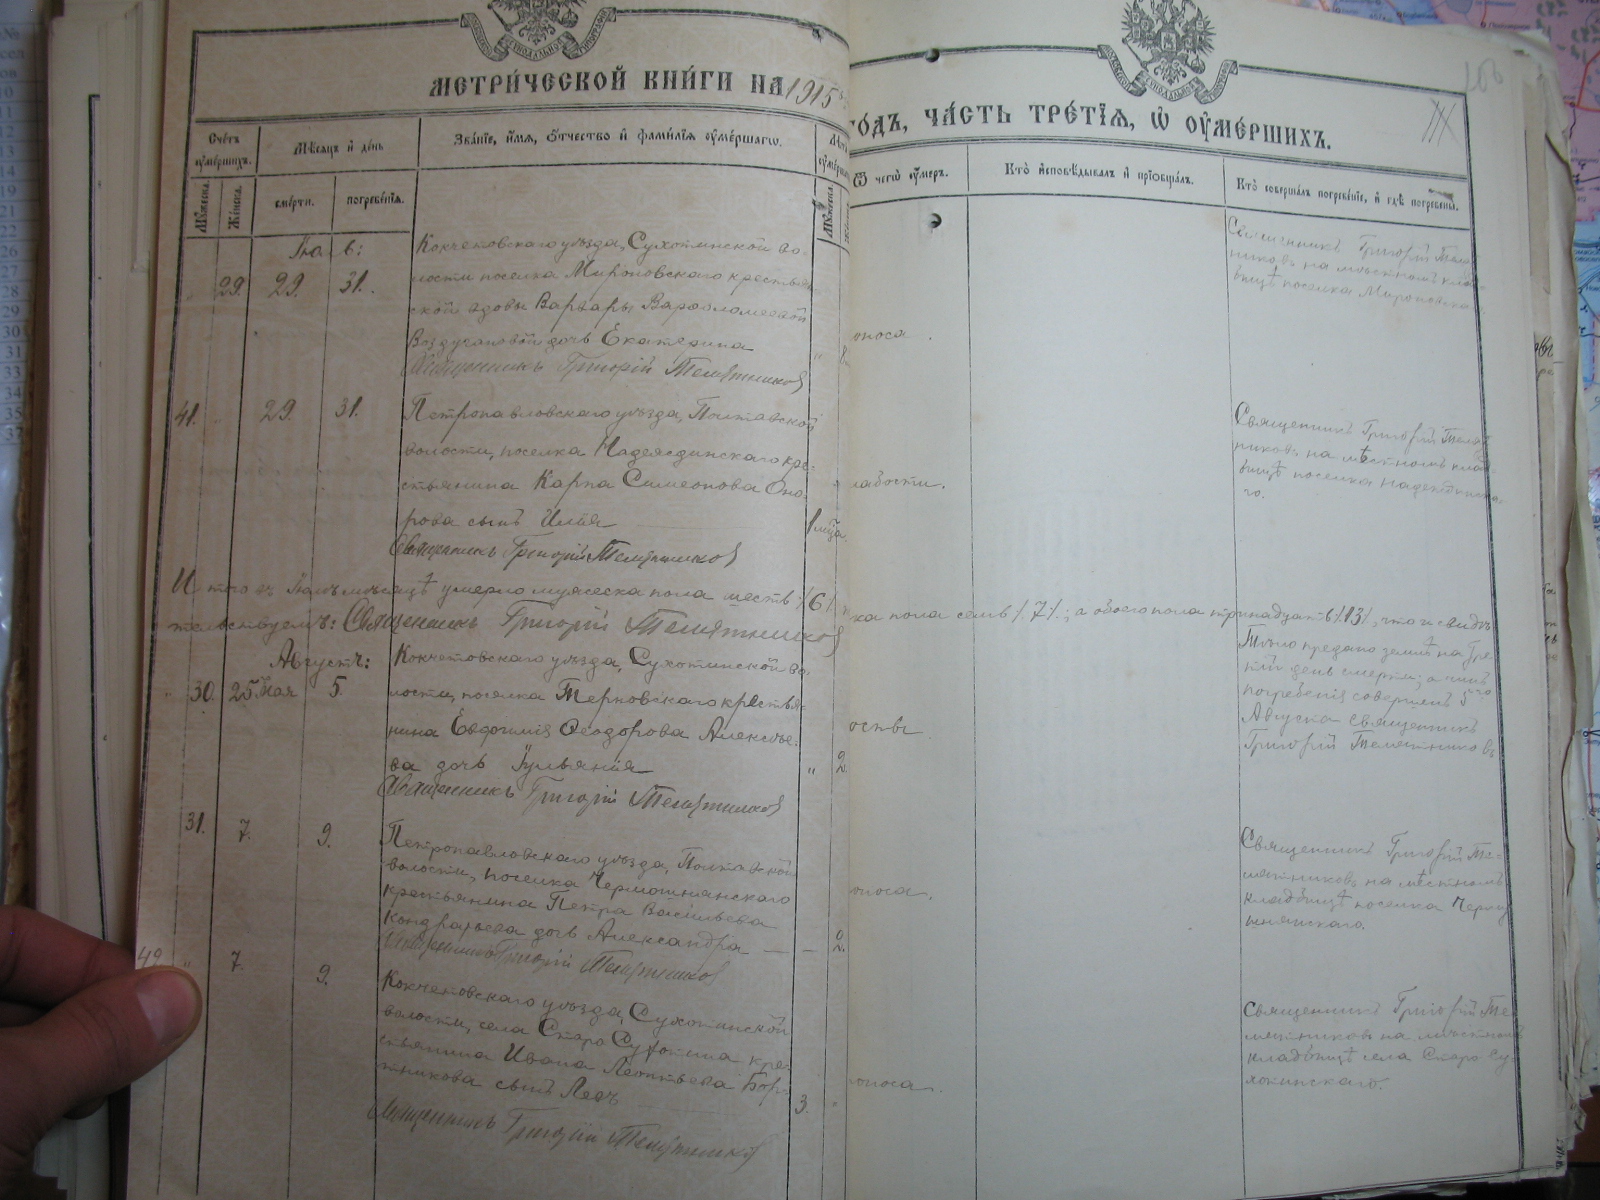 МЕТРИ́ЧЕСКОЙ КНИ́ГИ НА 1915
ГОДЪ, ЧА́СТЬ ТРЕ́ТІѦ, Ѡ ОУ҆МЕ́РШИХЪ.
Сче́тъ оу҆ме́ршихъ.
Мѣ́сяцъ и҆ де́нь
Зва́нїе, и҆́мѧ, ѻ҆́тчество и҆ фами́лїѧ оу҆ме́ршагѡ.
Мꙋ́жеска.
Же́нска.
сме́рти.
погребе́нїѧ.
Ѿ чегѡ̀ оу҆́меръ.
Кто̀ и҆сповѣ́дывалъ и҆ прїѻбща́лъ.
Кто̀ соверша́лъ погребе́нїе, и҆ гдѣ̀ погребены̀.
Іюль:
29. 29. 31.
Кокчетовскаго уѣзда, Сухотинской во-
лости поселка Мироновскаго крестьян
ской вдовы Варвары Варфоломеевой
дочь Екатерина
Священникъ Григорій Телятниковъ
оноса.
Священникъ Григорій Телят
никовъ на мѣстномъ клад
бищѣ поселка Мироновска
41. 29. 31.
Петропавловскаго уѣзда, Полтавской
волости, поселка Надеждинскаго кре-
стьянина Карпа Симеонова Оно-
рова сынъ Илія
1 мца.
Священникъ Григорій Телятниковъ
лабости.
Священникъ Григорій Телят
никовъ на мѣстномъ клад
бищѣ поселка Надеждинска
го.
Итого въ Іюлѣ мѣсяцѣ умерло мужеска пола шесть /6/
ка пола семь /7/; а обоего пола тринадцать /13/, что и свидѣ
тельствуемъ: Священникъ Григорій Телятниковъ
Августъ:
30. 25 Мая 5.
Кокчетовскаго уѣзда, Сухотинской во-
лости, поселка Терновскаго крестья-
нина Евфимія Ѳеодорова Алексѣе-
ва дочь Іуліанія
2.
Священникъ Григорій Телятниковъ
Тѣло предано землѣ на тре
тій день смерти; а чинъ
погребенія совершенъ 5го
Августа Священникъ
Григорій Телятниковъ
31. 7. 9.
Петропавловскаго уѣзда, Полтавской
волости, поселка Чермошнянскаго
крестьянина Петра Васильева
Кондратьева дочь Александра
2.
Священникъ Григорій Телятниковъ
оноса.
Священникъ Григорій Те-
лятниковъ на мѣстномъ
кладбищѣ поселка Чермо
шнянскаго.
42. 7. 9.
Кокчетовскаго уѣзда, Сухотинской
волости, села Старо Сухотина кре-
стьянина Ивана Леонтьева Бор-
тникова сынъ Левъ
3.
Священникъ Григорій Телятниковъ
оноса.
Священникъ Григорій Те
лятниковъ на мѣстномъ
кладбищѣ села Старо Су-
хотинскаго.